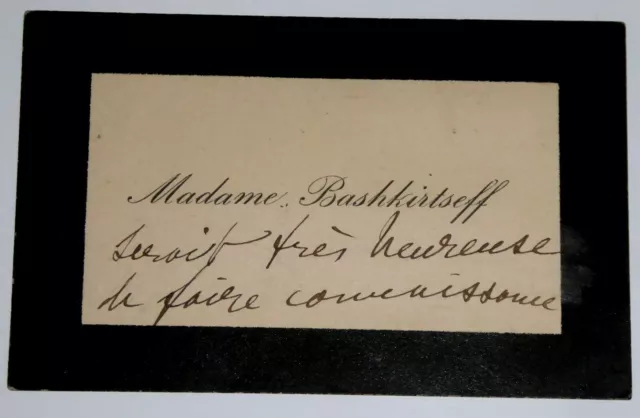 Madame Bashkirtseff
serait très heureuse
de faire connaissance